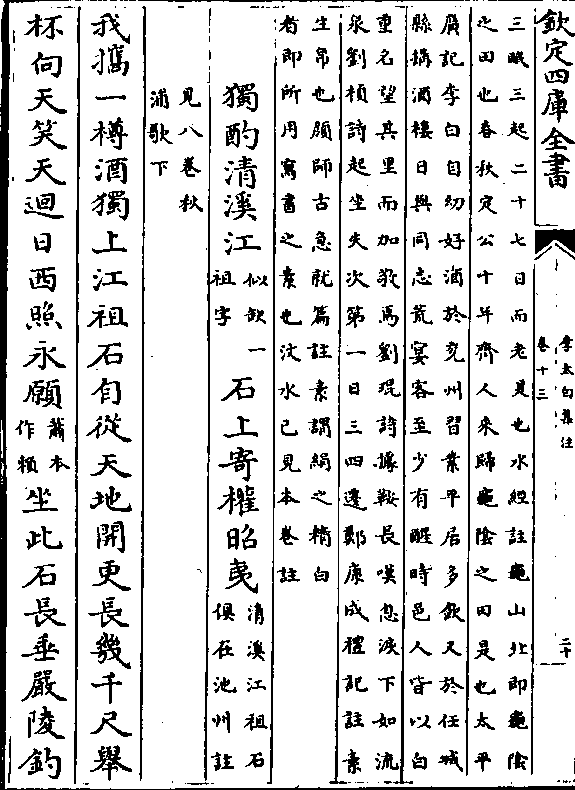 欽定四庫全書
李太白集注
卷十三
二十
三眠三起二十七日而老是也水經註龜山北即龜陰
之田也春秋定公十年齊人來歸龜陰之田是也太平
廣記李白自幼好酒於兖州習業平居多飲又於任城
縣搆酒樓日與同志荒宴客至少有醒時邑人皆以白
重名望其里而加敬焉劉琨詩據鞍長嘆息淚下如流
泉劉楨詩起坐失次第一日三四遷鄭康成禮記註素
生帛也顔師古急就篇註素謂絹之精白
者即所用寫書之素也汶水已見本卷註
獨酌清溪江
似欲一
祖字
石上寄權昭夷
清溪江祖石
俱在池州註
見八卷秋
浦歌下
我攜一樽酒獨上江祖石自從天地開更長幾千尺舉
杯向天笑天迴日西照永願
蕭本
作賴
坐此石長垂嚴陵釣